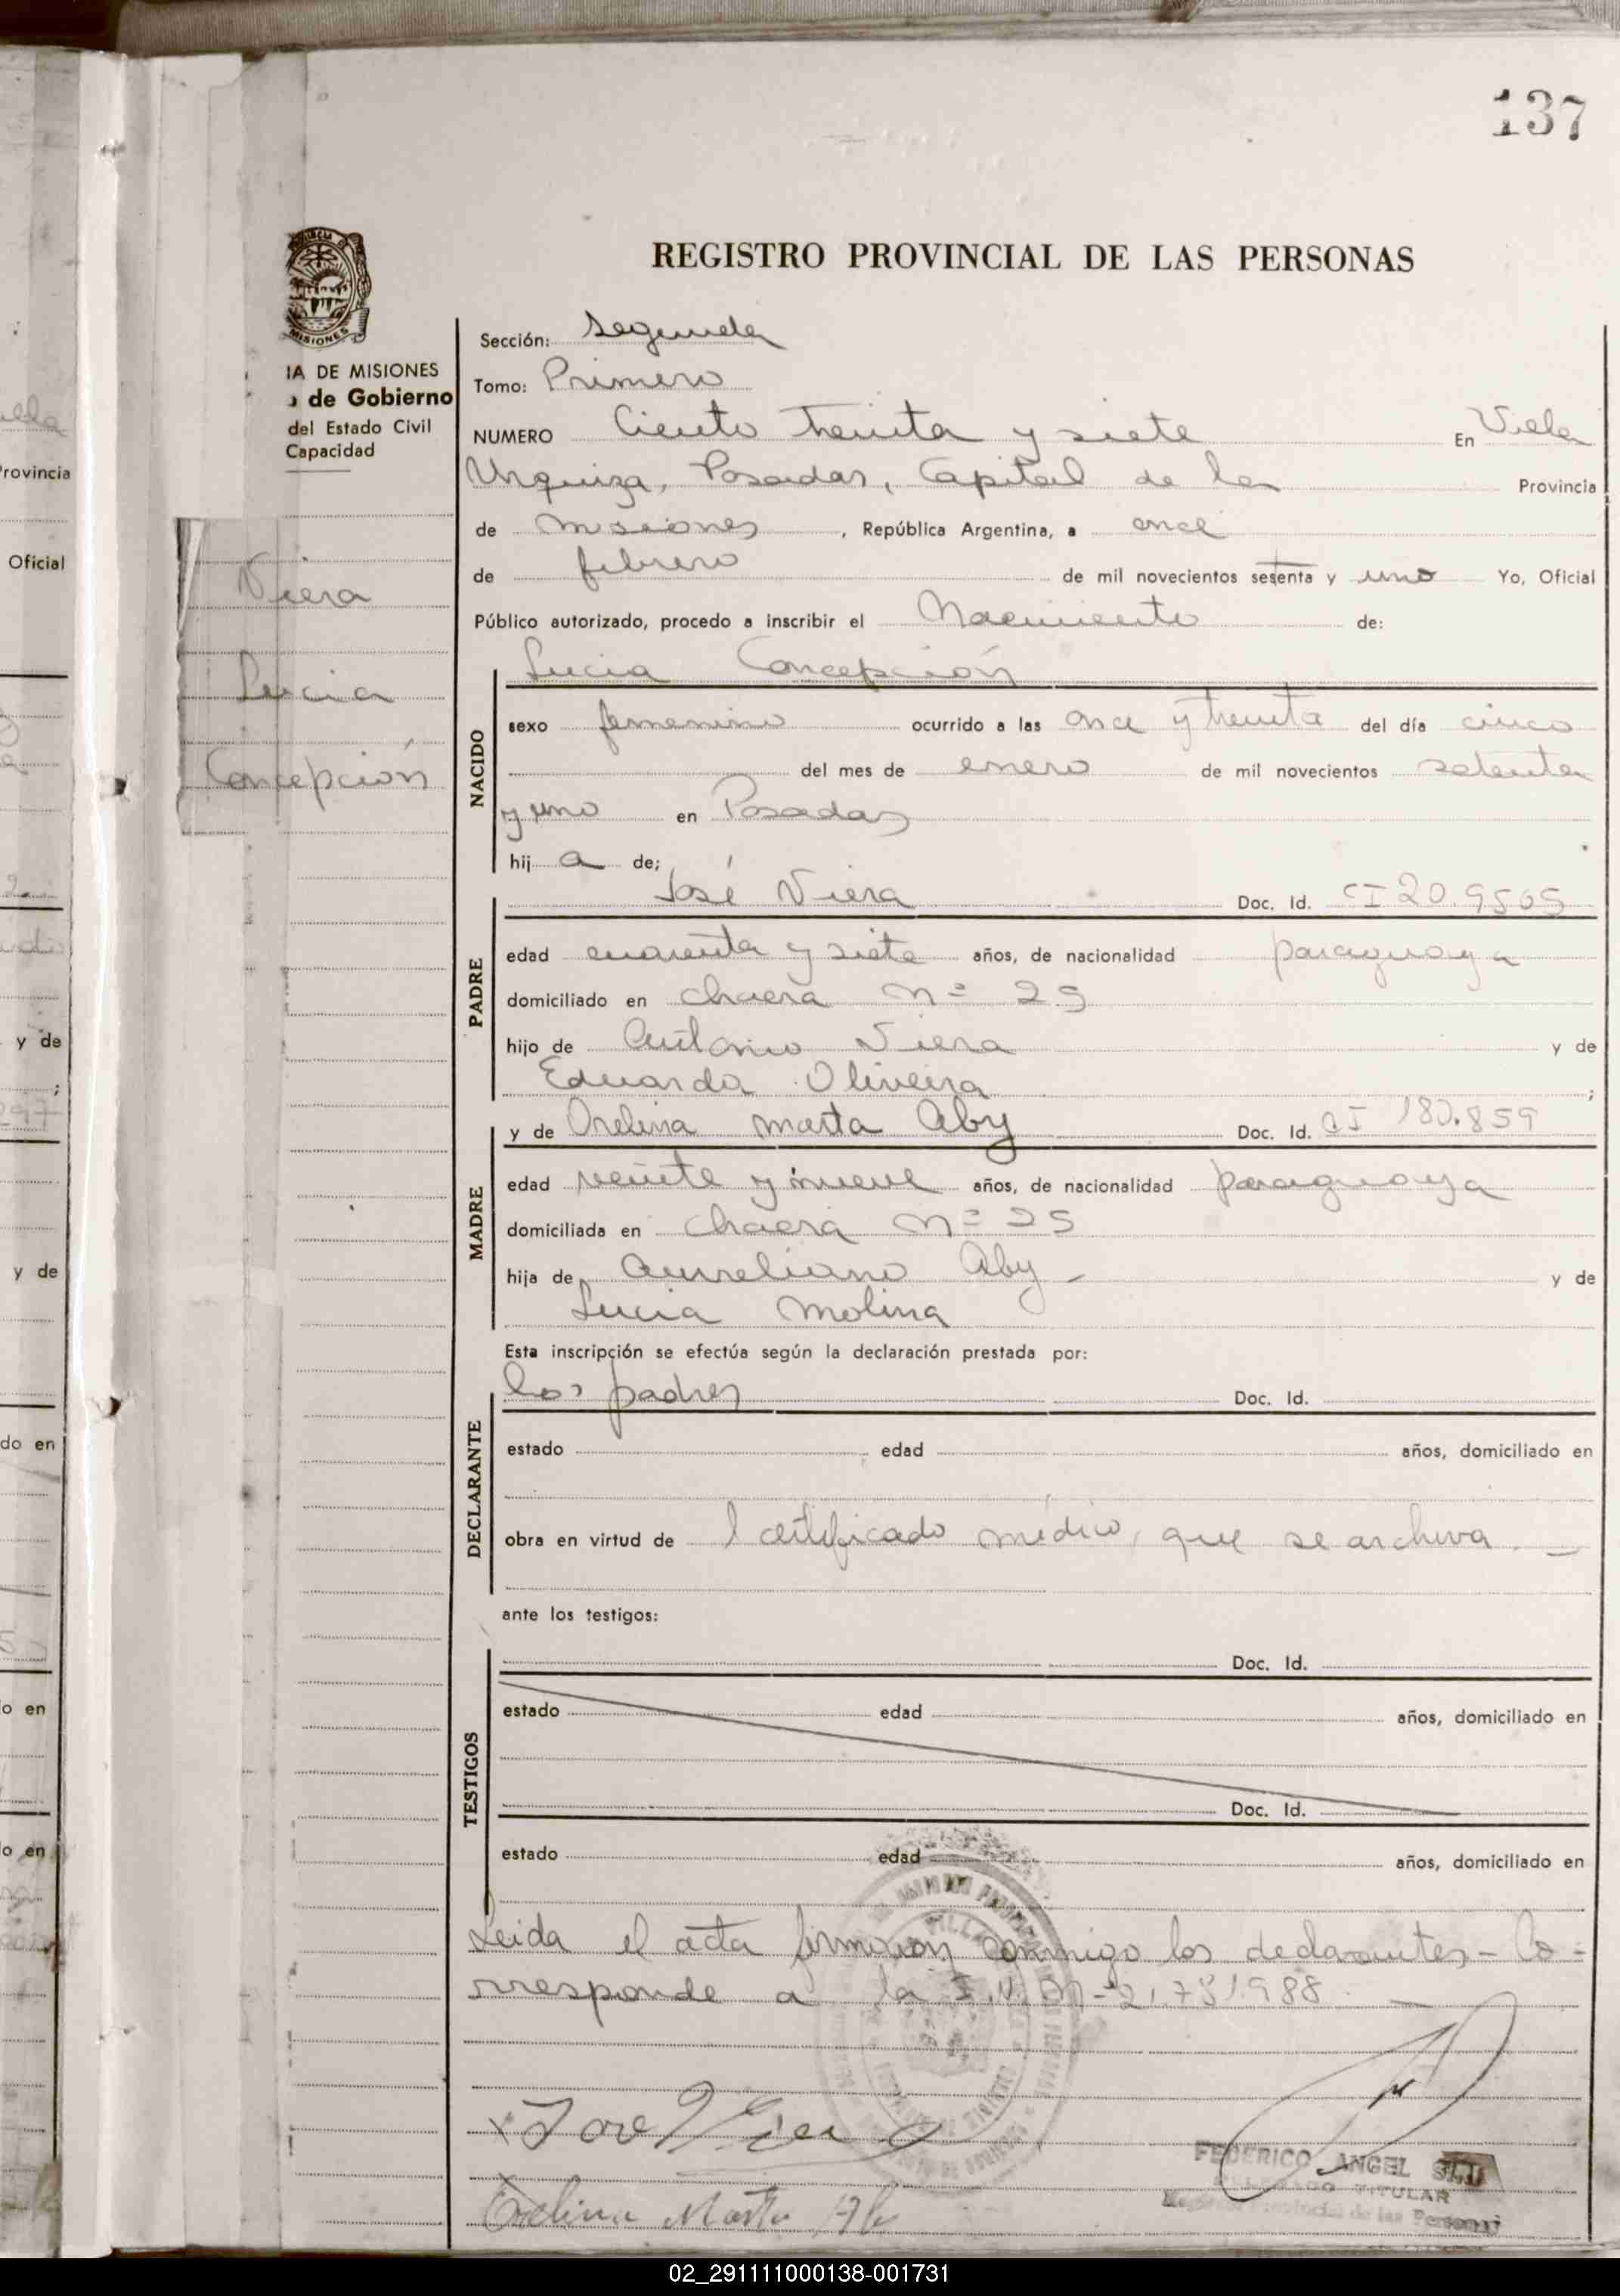 137
REGISTRO PROVINCIAL DE LAS PERSONAS
MISIONES
IA DE MISIONES
de Gobierno
del Estado Civil
Capacidad
Viera
Lucia
Concepción
Sección: Segunda
Tomo: Primero
NUMERO Ciento treinta y siete En Villa
Urquiza, Posadas, Capital de la Provincia
de Misiones, República Argentina, a once
de febrero de mil novecientos sesenta y uno Yo, Oficial
Público autorizado, procedo a inscribir el Nacimiento de:
Lucia Concepción
NACIDO
sexo femenino ocurrido a las once y treinta del día cinco
del mes de enero de mil novecientos setenta
y uno en Posadas
hij a de;
José Viera Doc. Id. CI 20.9505
PADRE
edad cuarenta y siete años, de nacionalidad paraguaya
domiciliado en chacra Nº 29
hijo de Antonio Viera y de
Eduarda Oliveira;
y de Orelina Marta Aby Doc. Id. CI 180.859
MADRE
edad veinte y nueve años, de nacionalidad paraguaya
domiciliada en chacra Nº 25
hija de Aureliano Aby - y de
Lucia Molina
Esta inscripción se efectúa según la declaración prestada por:
los padres Doc. Id.
DECLARANTE
estado edad años, domiciliado en
obra en virtud de l certificado médico, que se archiva. -
ante los testigos:
Doc. Id.
TESTIGOS
estado edad años, domiciliado en
Doc. Id.
estado edad años, domiciliado en
Leida el acta firmaron conmigo los declarantes - Co-
rresponde a la
x José Viera
Orelina Marta Ab
FEDERICO ANGEL
TITULAR
de las Personas
Provincia
Oficial
y de
y de
do en
o en
o en
02_291111000138-001731